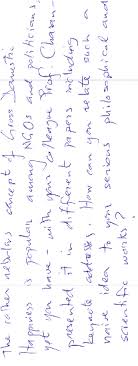 The rather nebulous concept of Gross Domestic
Happiness is popular among NGOs and politicians,
yet you have - with your colleague Prof. Charan -
presented it in different papers including
keynote addresses. How can you relate such a
naive idea to your serious philosophical and
scientific works?